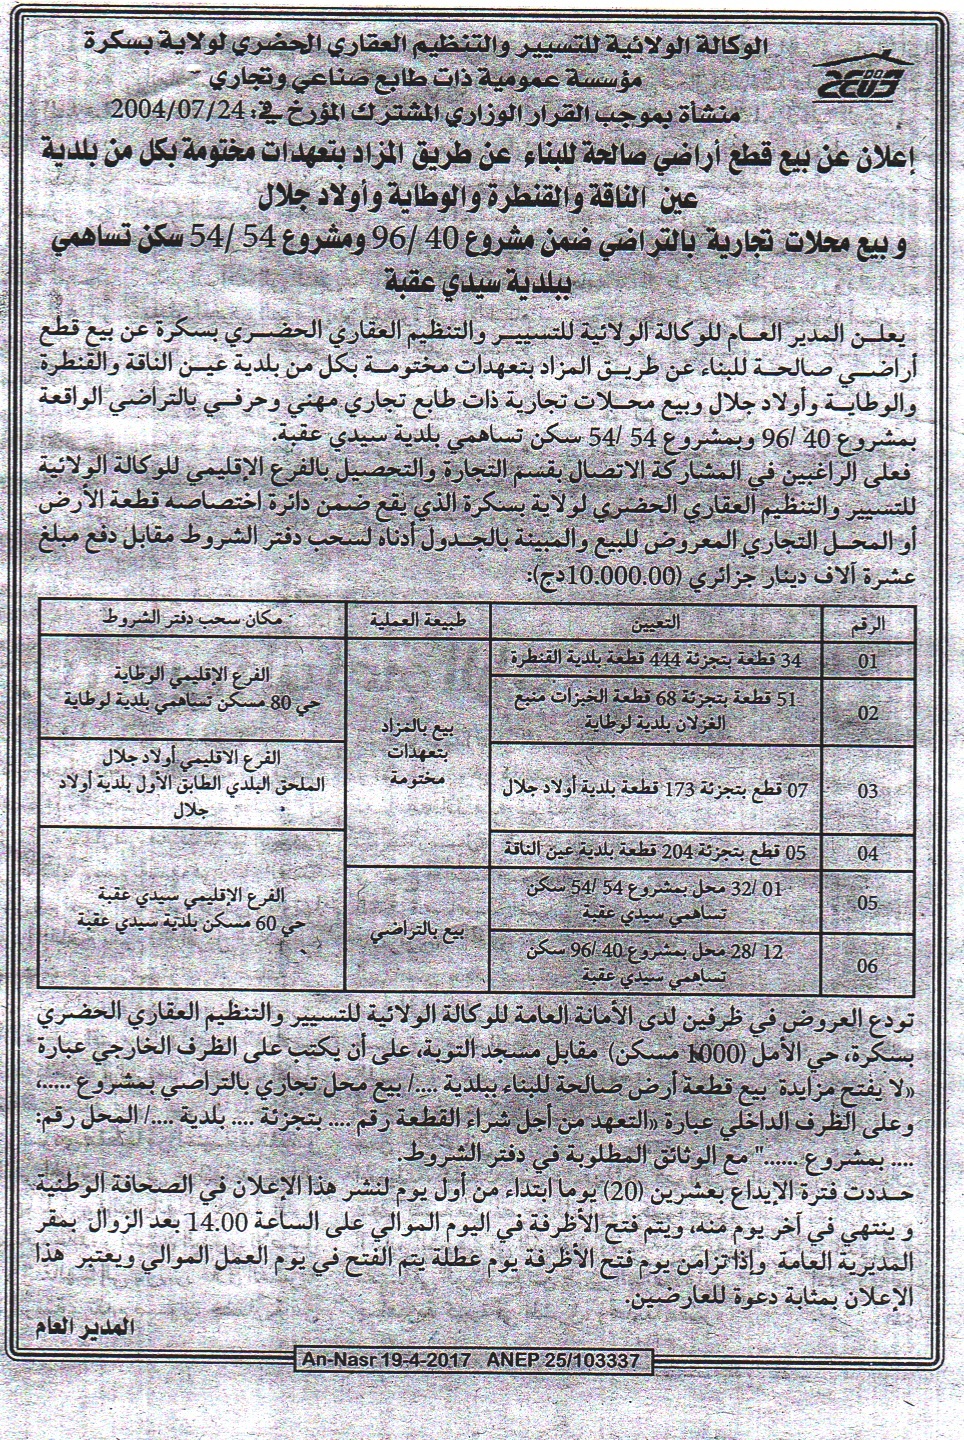 الوكالة الولائية للتسيير والتنظيم العقاري الحضري لولاية بسكرة
مؤسسة عمومية ذات طابع صناعي وتجاري
منشأة بموجب القرار الوزاري المشترك المؤرخ في: 2004/07/24
إعلان عن بيع قطع أراضي صالحة للبناء عن طريق المزاد بتعهدات مختومة بكل من بلدية
عين الناقة والقنطرة والوطاية وأولاد جلال
و بيع محلات تجارية بالتراضي ضمن مشروع 40 /96 ومشروع 54 /54 سكن تساهمي
ببلدية سيدي عقبة
يعلن المدير العام للوكالة الولائية للتسيير والتنظيم العقاري الحضري بسكرة عن بيع قطع
أراضي صالحة للبناء عن طريق المزاد بتعهدات مختومة بكل من بلدية عين الناقة والقنطرة
والوطاية وأولاد جلال وبيع محلات تجارية ذات طابع تجاري مهني وحرفي بالتراضي الواقعة
بمشروع 40 /96 وبمشروع 54 /54 سكن تساهمي بلدية سيدي عقبة.
فعلى الراغبين في المشاركة الاتصال بقسم التجارة والتحصيل بالفرع الإقليمي للوكالة الولائية
للتسيير والتنظيم العقاري الحضري لولاية بسكرة الذي يقع ضمن دائرة اختصاصه قطعة الأرض
أو المحل التجاري المعروض للبيع والمبينة بالجدول أدناه لسحب دفتر الشروط مقابل دفع مبلغ
عشرة آلاف دينار جزائري (10.000.00دج):
الرقم التعيين طبيعة العملية مكان سحب دفتر الشروط
01 34 قطعة بتجزئة 444 قطعة بلدية القنطرة
02 51 قطعة بتجزئة 68 قطعة الخبزات منبع
الغزلان بلدية لوطاية
الفرع الإقليمي الوطاية
حي 80 مسكن تساهمي بلدية لوطاية
بيع بالمزاد
بتعهدات
مختومة
03 07 قطع بتجزئة 173 قطعة بلدية أولاد جلال
الفرع الاقليمي أولاد جلال
الملحق البلدي الطابق الأول بلدية أولاد
جلال
04 05 قطع بتجزئة 204 قطعة بلدية عين الناقة
05 01 /32 محل بمشروع 54 /54 سكن
تساهمي سيدي عقبة
بيع بالتراضي
الفرع الإقليمي سيدي عقبة
حي 60 مسكن بلدية سيدي عقبة
06 12 /28 محل بمشروع 40 /96 سكن
تساهمي سيدي عقبة
تودع العروض في ظرفين لدى الأمانة العامة للوكالة الولائية للتسيير والتنظيم العقاري الحضري
بسكرة، حي الأمل (1000 مسكن) مقابل مسجد التوبة، على أن يكتب على الظرف الخارجي عبارة
«لا يفتح مزايدة بيع قطعة أرض صالحة للبناء ببلدية ..../ بيع محل تجاري بالتراضي بمشروع ......،
وعلى الظرف الداخلي عبارة «التعهد من أجل شراء القطعة رقم .... بتجزئة .... بلدية ..../ المحل رقم:
.... بمشروع ......" مع الوثائق المطلوبة في دفتر الشروط.
حددت فترة الإيداع بعشرين (20) يوما ابتداء من أول يوم لنشر هذا الإعلان في الصحافة الوطنية
و ينتهي في آخر يوم منه، ويتم فتح الأظرفة في اليوم الموالي على الساعة 14.00 بعد الزوال بمقر
المديرية العامة وإذا تزامن يوم فتح الأظرفة يوم عطلة يتم الفتح في يوم العمل الموالي ويعتبر هذا
الإعلان بمثابة دعوة للعارضين.
المدير العام
An-Nasr 19-4-2017 ANEP 25/103337